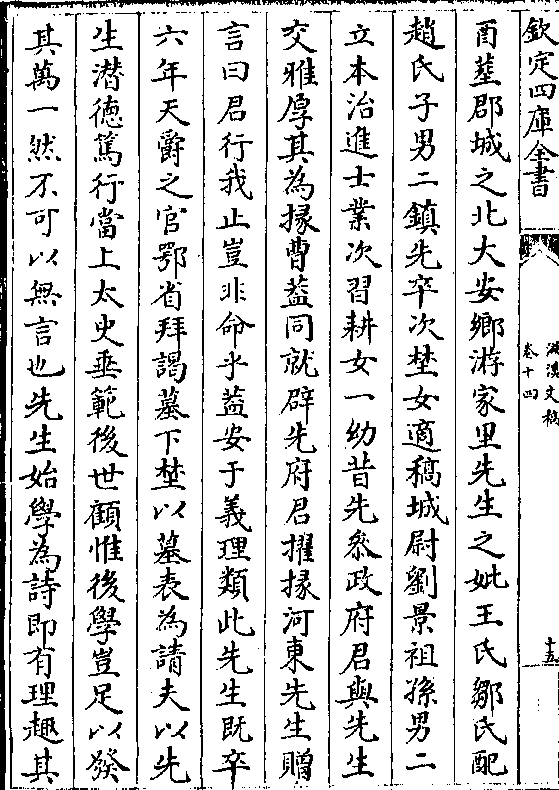 欽定四庫全書
滋溪文稿
卷十四
十五
酉塟郡城之北大安鄉游家里先生之妣王氏鄒氏配
趙氏子男二鎮先卒次埜女適稿城尉劉景祖孫男二
立本治進士業次習耕女一幼昔先叅政府君與先生
交雅厚其為掾曹葢同就辟先府君擢掾河東先生贈
言曰君行我止豈非命乎葢安于義理類此先生既卒
六年天爵之官鄂省拜謁墓下埜以墓表為請夫以先
生潜德篤行當上太史垂範後世顧惟後學豈足以發
其萬一然不可以無言也先生始學為詩即有理趣其